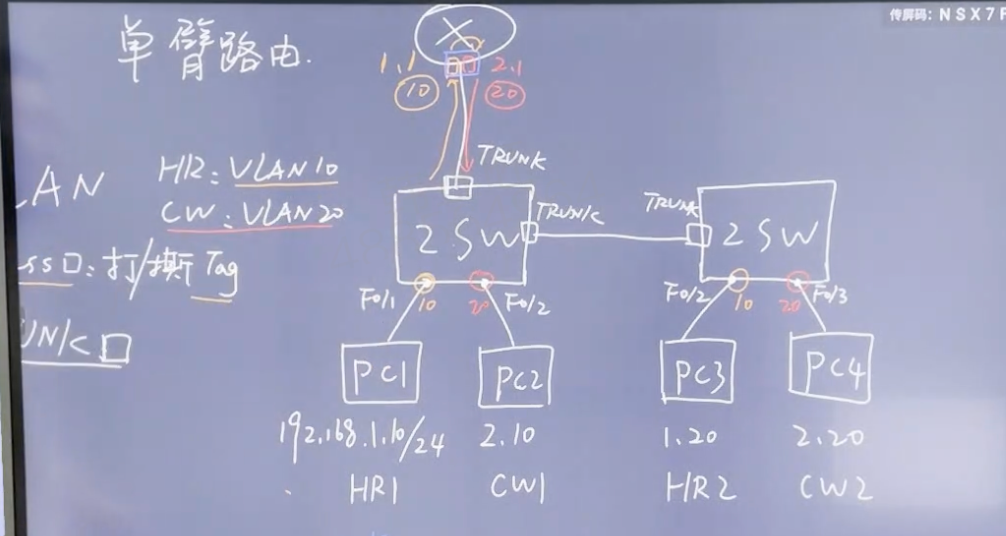 传屏码: NSX7F
单臂路由.
X
1.1 2.1
10 20
TRUNK
LAN HR: VLAN10
CW: VLAN20
ss口: 打/撕 Tag
UN/C口
2SW TRUNK TRUNK 2SW
F0/1 10 20 F0/2 F0/2 10 20 F0/3
PC1 PC2 PC3 PC4
192.168.1.10/24 2.10 1.20 2.20
HR1 CW1 HR2 CW2